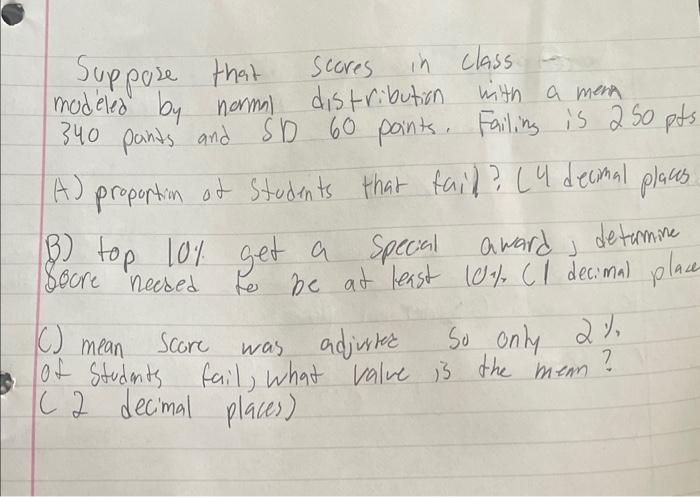 Suppose that scores in class -
modeled by normal distribution with a mean
340 points and SD 60 points. Failing is 250 pts
A) proportion of students that fail? (4 decimal places
B) top 10% get a special award, determine
Score needed to be at least 10% (1 decimal place
C) mean score was adjusted so only 2%
of students fail, what value is the mean?
(2 decimal places)